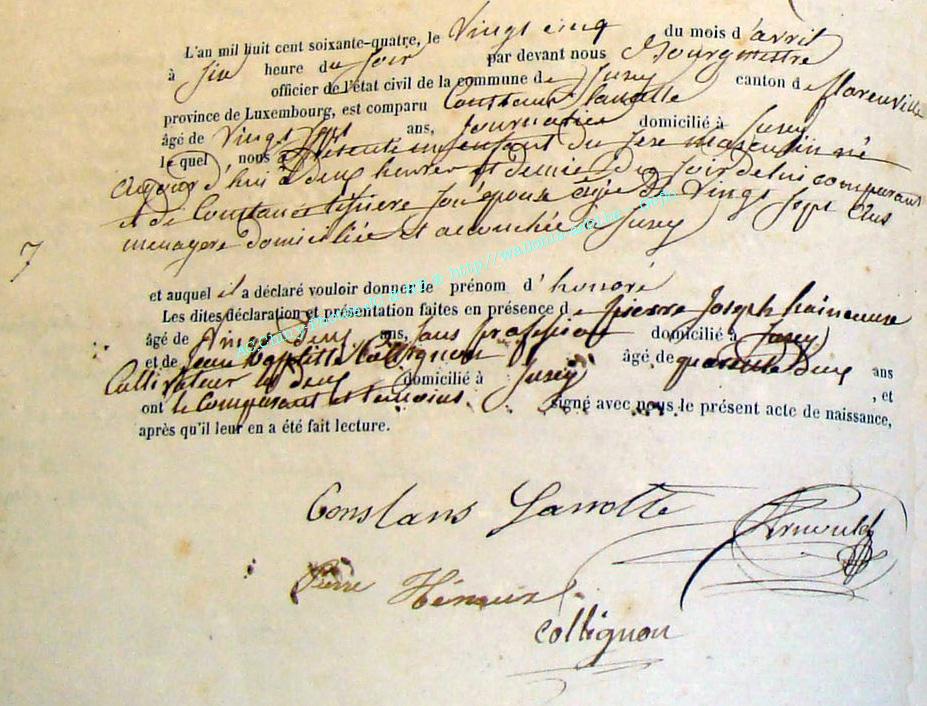 L'an mil huit cent soixante-quatre, le Vingt cinq du mois d'avril
à Six heure du soir par devant nous Bourgmestre
officier de l'état civil de la commune de Suxy canton de florenville
province de Luxembourg, est comparu Constant
âgé de Vingt Sept ans, Journalier domicilié à Suxy
lequel, nous a Présenté un enfant du Sexe masculin né
aujourd'hui à deux heures et demie du soir de lui comparant
et de Constance Son épouse agée de Vingt Sept ans
menagere domiciliée et accouchée a Suxy
7
et auquel il a déclaré vouloir donner le prénom d'honoré
Les dites déclaration et présentation faites en présence de pierre Joseph
âgé de deux ans, Sans profession domicilié à Suxy
et de Jean Baptiste Collignon âgé de quarante deux ans
Cultivateur domicilié à Suxy , et
ont le Comparant et temoins signé avec nous le présent acte de naissance,
après qu'il leur en a été fait lecture.
Constans
Pierre
Collignon